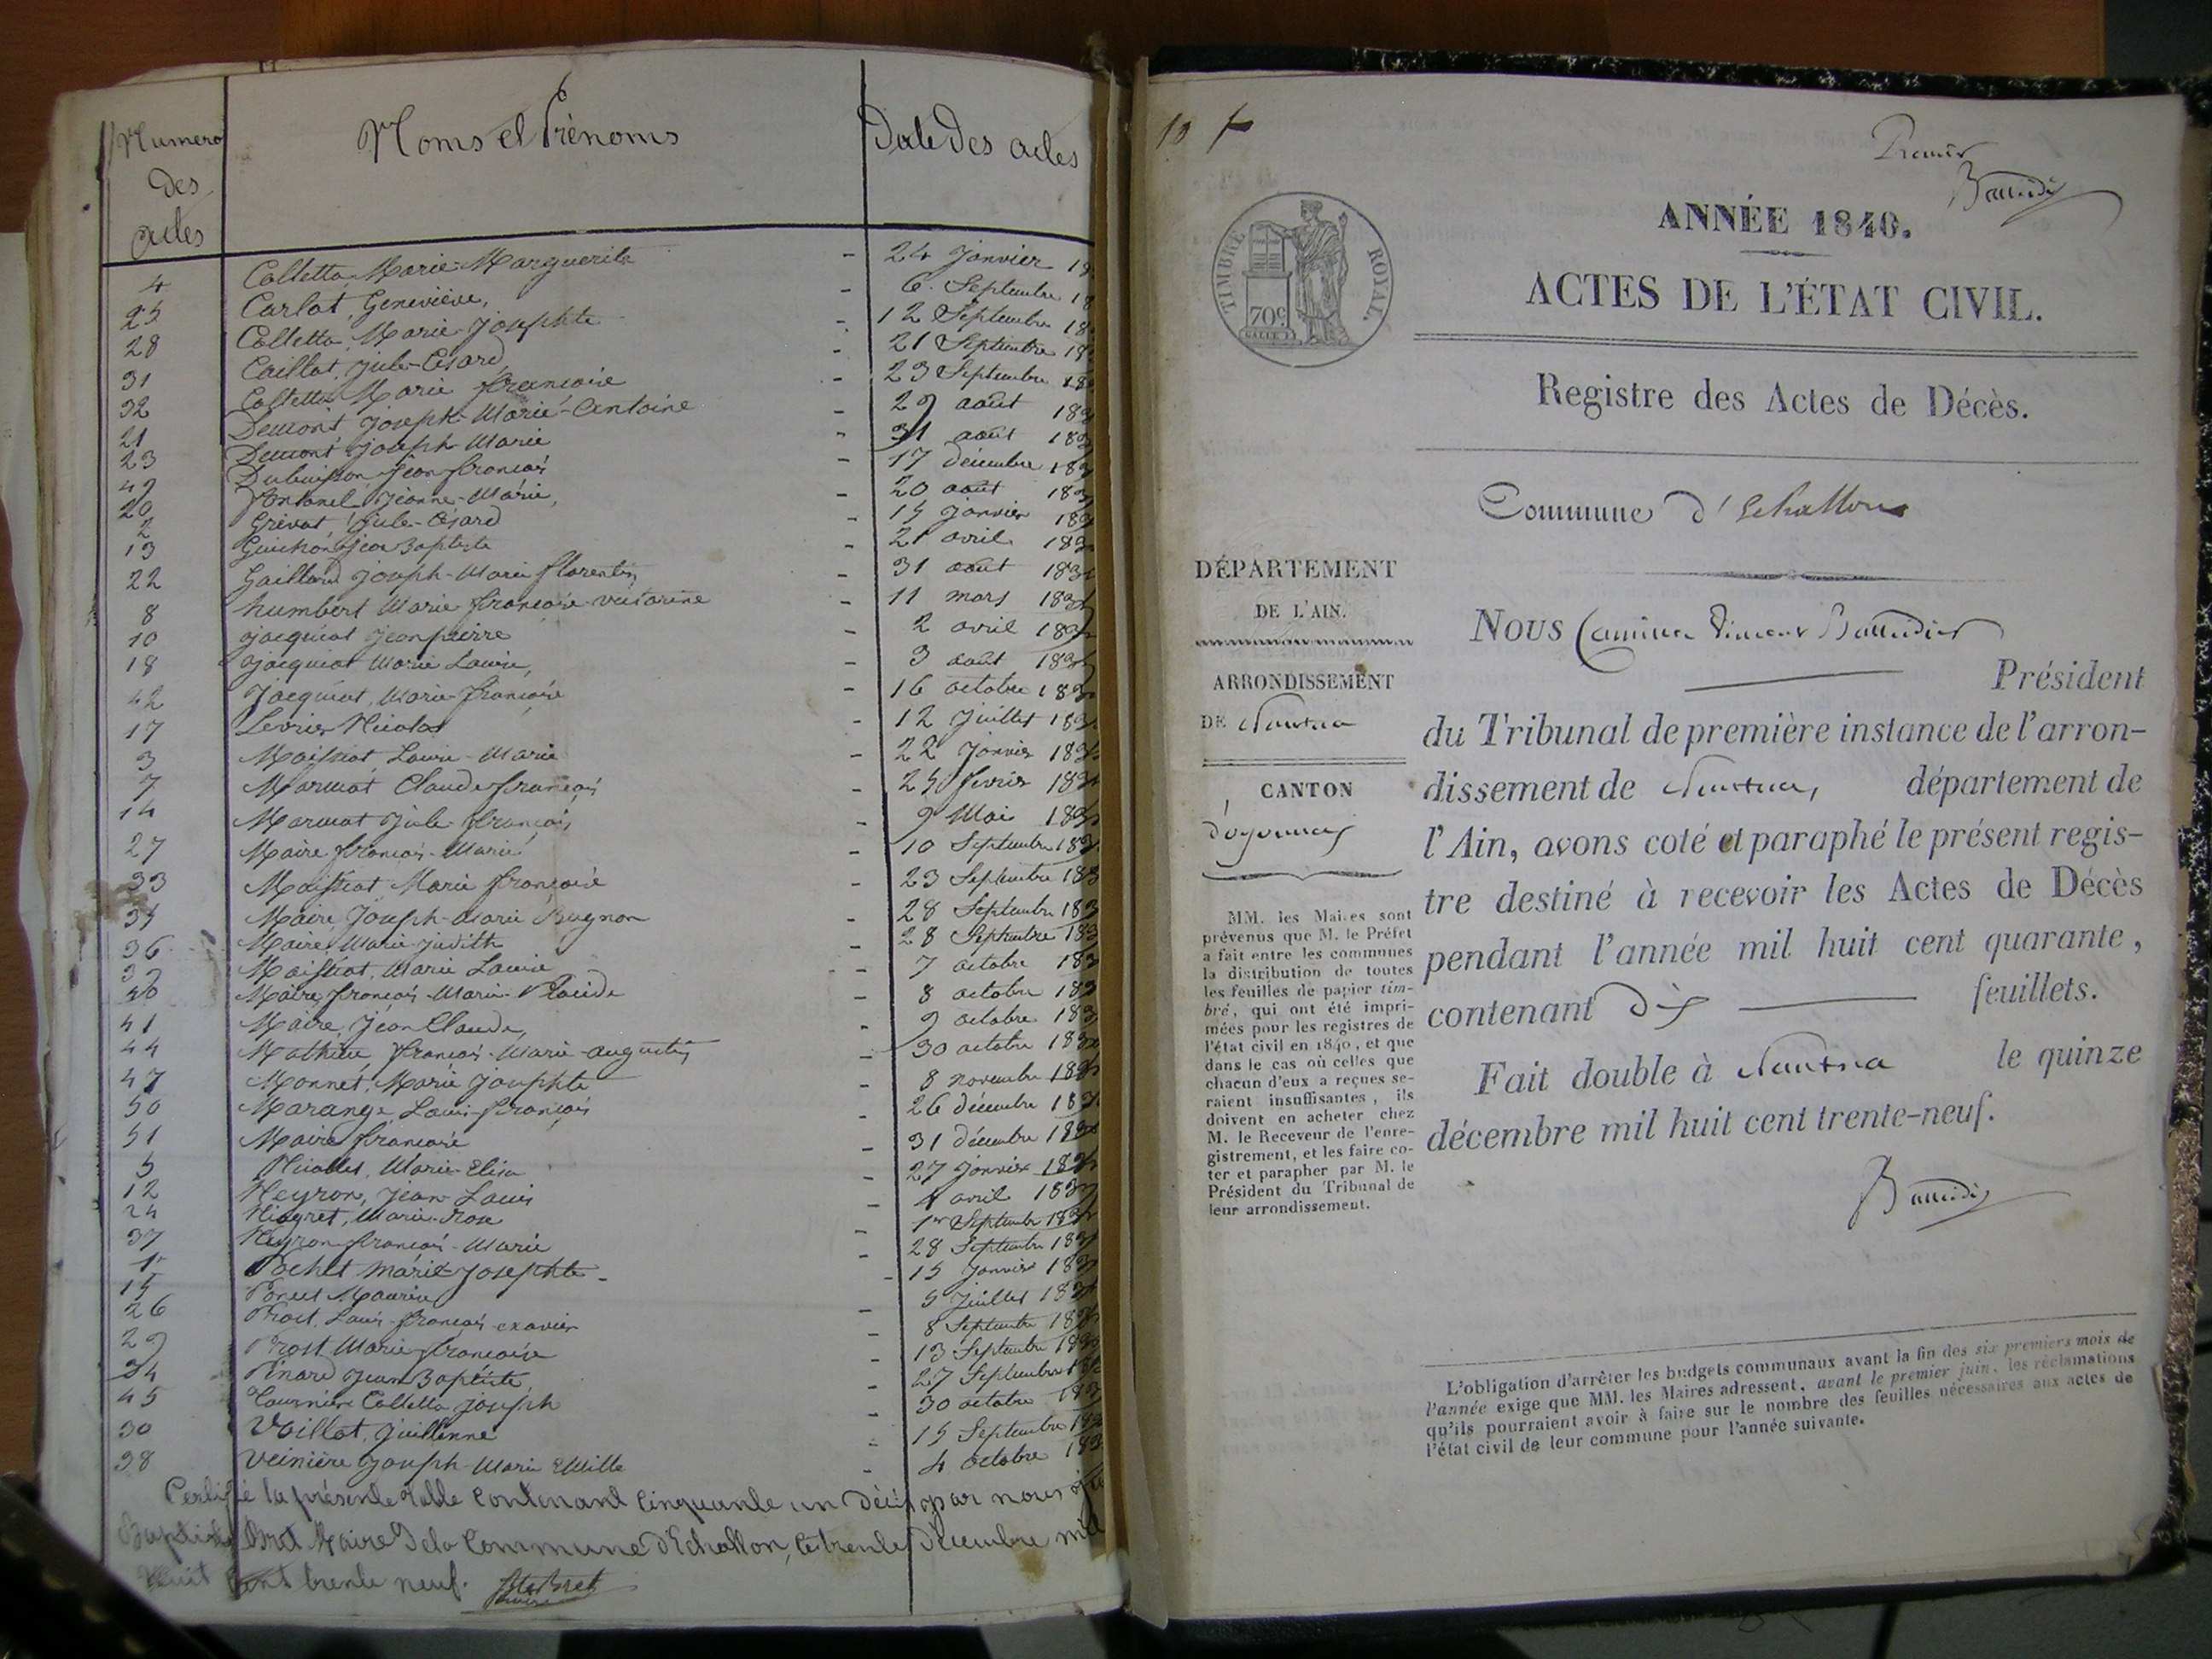 Numero
des
actes
Noms et Prénoms
Date des actes
4 Colletta Marie Marguerite - 24 Janvier 18
25 Carlot, Geneviève, - 6 Septembre 18
28 Colletta, Marie Josephte - 12 Septembre 18
31 Caillat, Jule-César - 21 Septembre 18
32 Colletta Marie françoise - 23 Septembre 183
21 Demont Joseph-Marie-Antoine - 29 août 183
23 Demont Joseph Marie - 31 août 183
49 Dubuisson Jean françois - 17 décembre 183
20 fontanel Jeanne-Marie, - 20 août 183
2 Grévat Jule-César - 15 Janvier 183
13 Guichon Jean Baptiste - 21 avril 183
22 Gaillard Joseph-Marie florentin - 31 août 183
8 humbert Marie françoise - 11 mars 183
10 Jacquiot Jean pierre - 2 avril 183
18 Jacquiot Marie Louise, - 3 août 183
42 Jacquiot, Marie-françoise - 16 octobre 183
17 Levrier Nicolas - 12 Juillet 183
3 Maissiat Louise-Marie - 22 Janvier 183
7 Marmot Claude françois - 25 fevrier 183
14 Marmot Jule françois - 9 Mai 183
27 Maire françois-Marie - 10 Septembre 183
33 Maissiat Marie françoise - 23 Septembre 183
35 Maire Joseph-Marie Bugnon - 28 Septembre 183
36 Maire Marie Judith - 28 Septembre 183
39 Maissiat, Marie Louise - 7 octobre 183
40 Maire françois-Marie-Placide - 8 octobre 183
41 Maire, Jean Claude, - 9 octobre 183
44 Mathieu françois-Marie-augustin - 30 octobre 183
47 Monnet, Marie Josephte - 8 novembre 183
50 Marange Louis-françois - 26 décembre 183
51 Maire françoise - 31 décembre 183
5 Nicollet, Marie-Elisa - 27 Janvier 183
12 Neyron, Jean-Louis - 4 avril 183
24 Niogret, Marie-Rose - 1er Septembre 183
37 Neyron françois-Marie - 28 Septembre 183
1 Pochet Marie Josephte - 15 Janvier 183
15 Poncet Maurice - 5 Juillet 183
26 Prost, Louis-françois-exavier - 8 Septembre 183
29 Prost Marie françoise - 13 Septembre 183
34 Pinard Jean Baptiste - 27 Septembre 183
45 Tournier Colletta Joseph - 30 octobre 183
30 Voillat, Juillenne - 15 Septembre 183
38 Veinière Joseph-Marie Emille - 4 octobre 183
Certifié la présente table contenant cinquante un décès par nous
Baptiste Bret Maire de la Commune d'Echallon, le trente décembre mil
huit cent trente neuf. Bte Bret
10
Premier
Baudin
TIMBRE ROYAL.
70c
ANNÉE 1840.
ACTES DE L'ÉTAT CIVIL.
Registre des Actes de Décès.
Commune d'Echallon
DÉPARTEMENT
DE L'AIN.
ARRONDISSEMENT
DE Nantua
CANTON
d'oyonnax
MM. les Maires sont
prévenus que M. le Préfet
a fait entre les communes
la distribution de toutes
les feuilles de papier tim-
bré, qui ont été impri-
mées pour les registres de
l'état civil en 1840, et que
dans le cas où celles que
chacun d'eux a reçues se-
raient insuffisantes, ils
doivent en acheter chez
M. le Receveur de l'enre-
gistrement, et les faire co-
ter et parapher par M. le
Président du Tribunal de
leur arrondissement.
Nous Camille Vincent
Président
du Tribunal de première instance de l'arron-
dissement de Nantua, département de
l'Ain, avons coté et paraphé le présent regis-
tre destiné à recevoir les Actes de Décès
pendant l'année mil huit cent quarante,
contenant dix feuillets.
Fait double à Nantua le quinze
décembre mil huit cent trente-neuf.
L'obligation d'arrêter les budgets communaux avant la fin des six premiers mois de
l'année exige que MM. les Maires adressent, avant le premier juin, les réclamations
qu'ils pourraient avoir à faire sur le nombre des feuilles nécessaires aux actes de
l'état civil de leur commune pour l'année suivante.